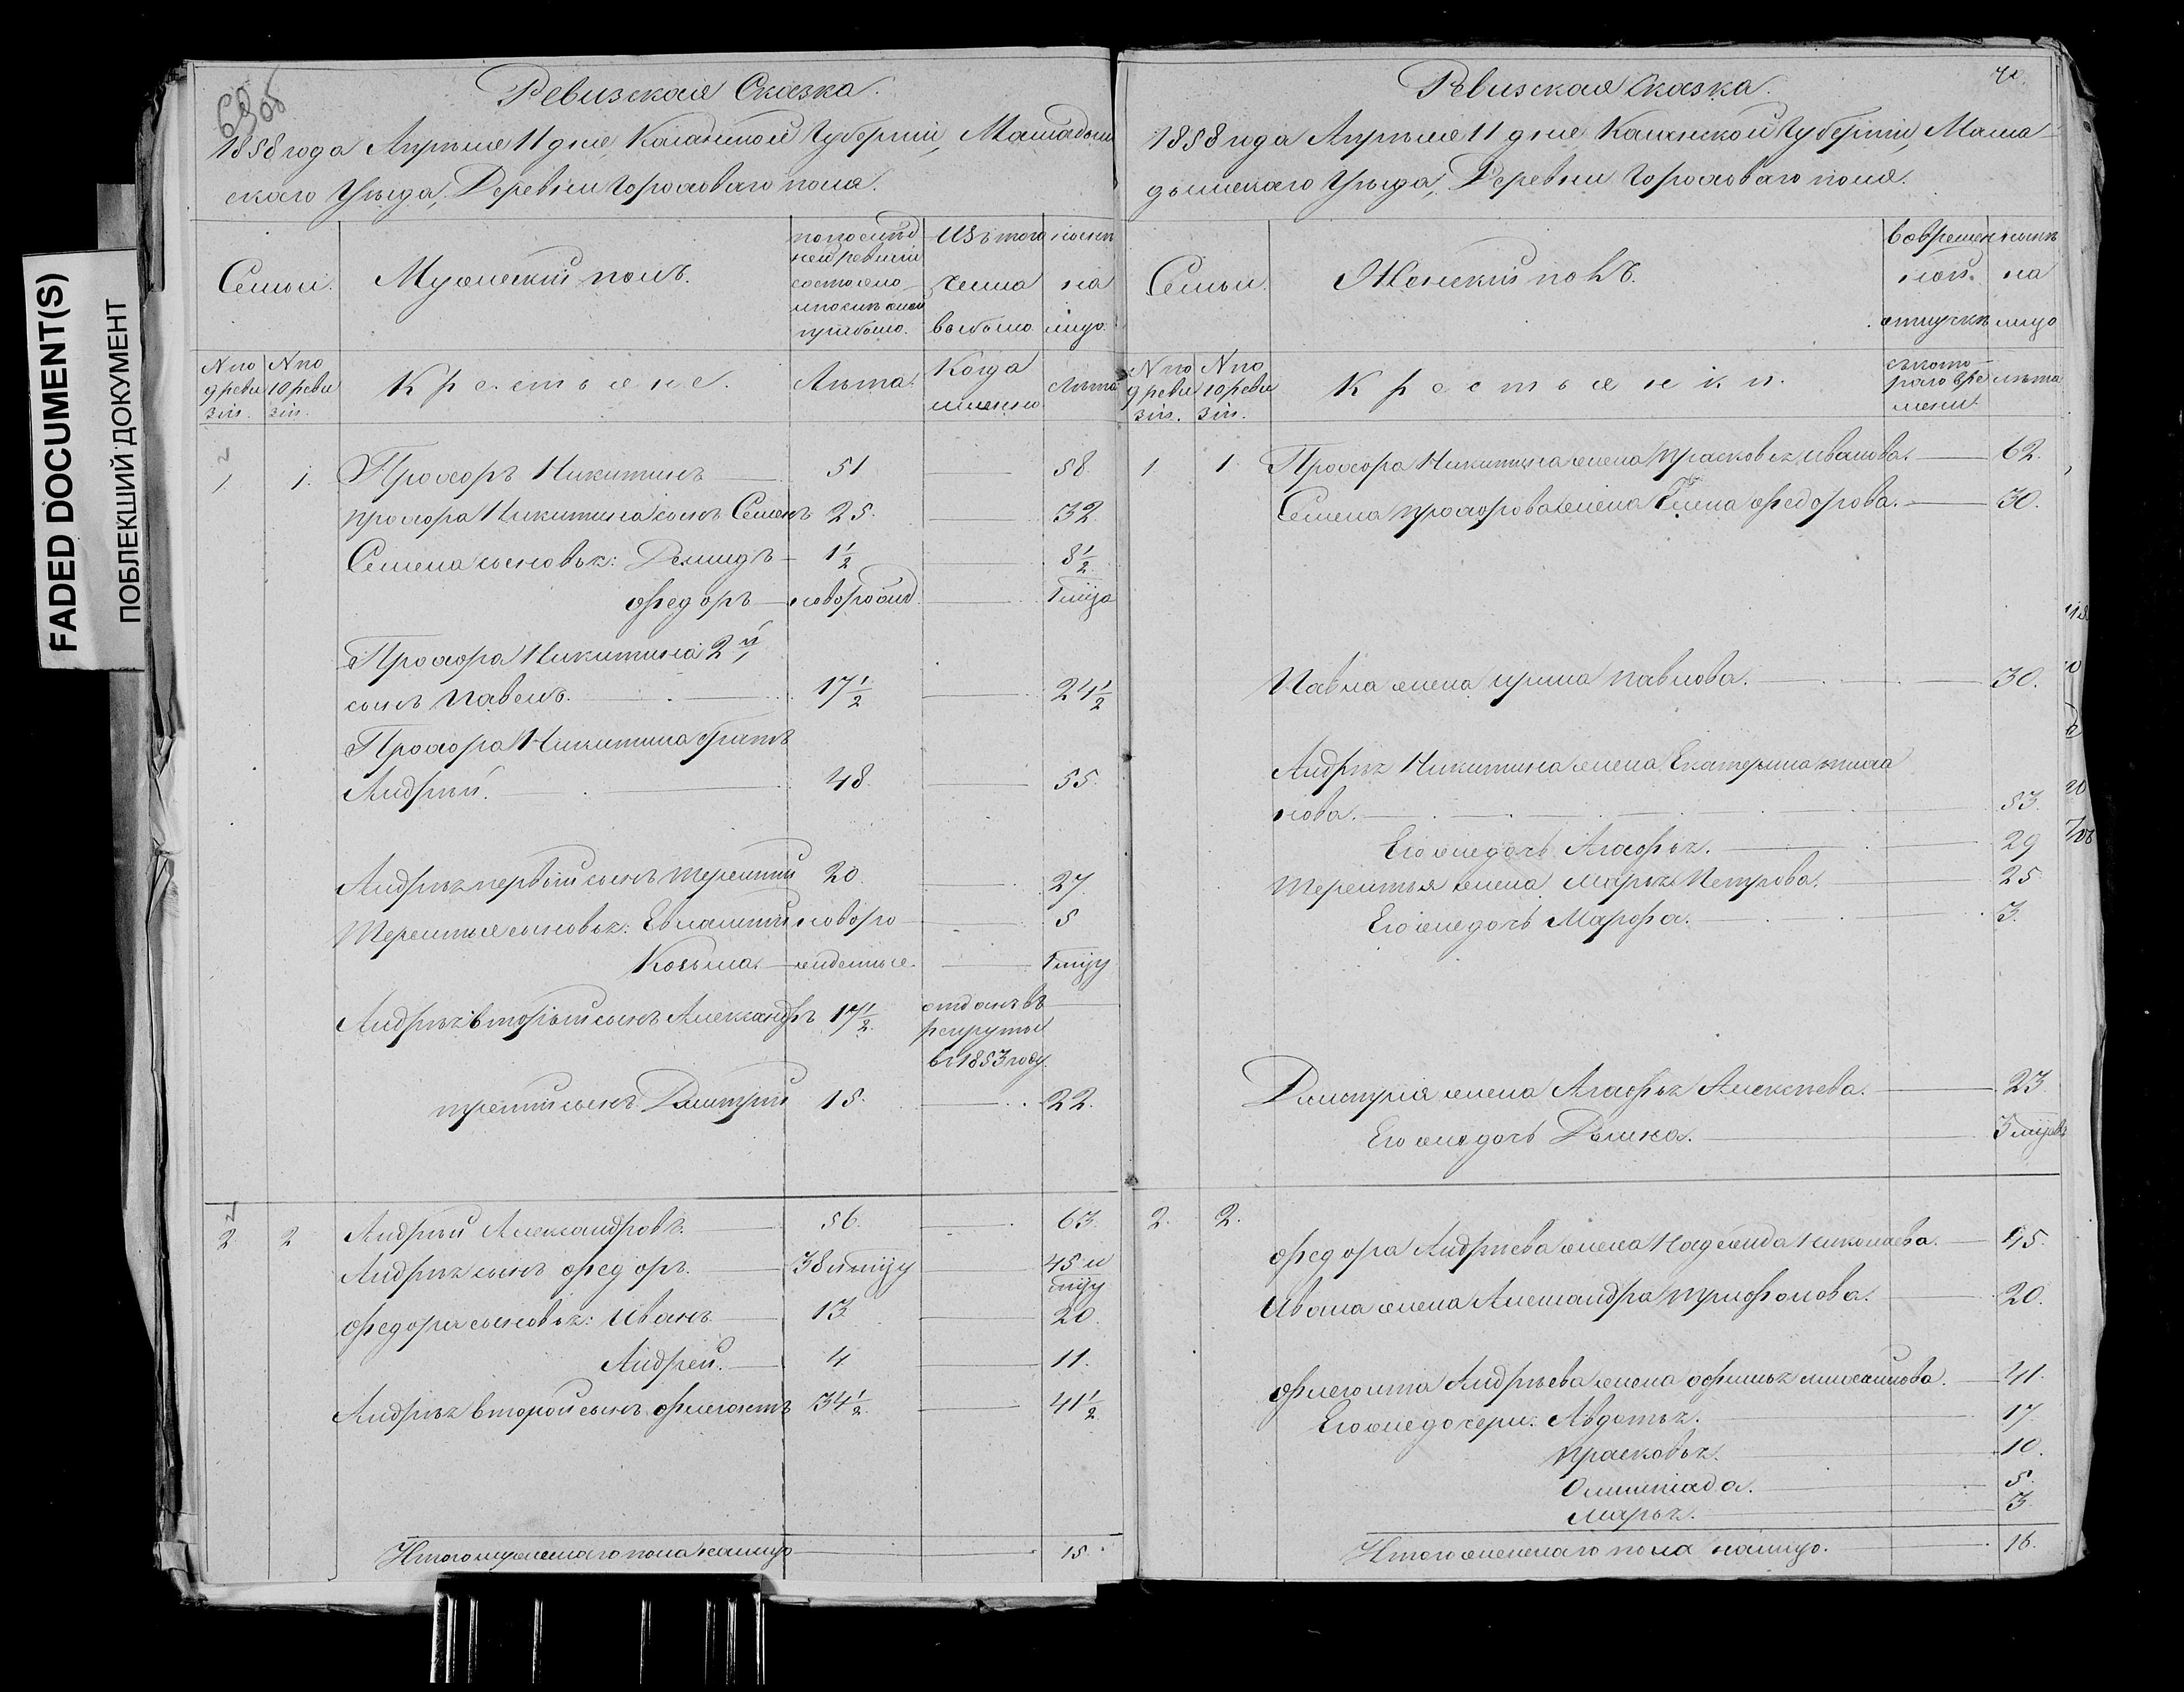 FADED DOCUMENT(S)
ПОБЛЕКШИЙ ДОКУМЕНТ
69 об
Ревизская Сказка.
1858 года Апреля 11 дня, Казанской Губерніи, Мамадыш
скаго Уѣзда, Деревни Гороховаго поля.
Семьи.
Мужескій полъ.
по послѣд
ней ревизіи
состояло
и послѣ оной
прибыло.
Изъ того
числа
выбыло.
нынѣ
на
лицо.
N по
9 реви
зіи.
N по
10 реви
зіи.
Крестьяне.
Лѣта.
Когда
именно
Лѣта
1. 1. Прохоръ Никитинъ 51 58.
Прохора Никитина сынъ Семенъ 25. 32
Семена сыновья: Демидъ 1 1/2 8 1/2
Федоръ новорожд. 7 мцо
Прохора Никитина 2й
сынъ Павелъ. 17 1/2 24 1/2
Прохора Никитина братъ
Андрѣй. 48. 55.
Андрѣя первый сынъ Терентій 20. 27.
Терентія сыновья: Евлампій новоро 5
Козьма. жденные. 7 мцу
Андрѣя вторый сынъ Александръ 17 1/2 отданъ въ
рекруты
въ 1853 году.
третій сынъ Дмитрій 15. 22.
2 2 Андрѣй Александровъ. 56. 63.
Андрѣя сынъ Федоръ. 38 и мцу 45 и
мцу
Федора сыновья: Иванъ. 13 20.
Андрей. 4 11.
Андрѣя второй сынъ Флегонтъ 34 1/2 41 1/2
Итого мужескаго пола налицо 15.
Ревизская Сказка.
70
1858 года Апрѣля 11 дня, Казанской Губерніи, Мама
дышскаго Уѣзда, Деревни Гороховаго поля.
Семьи.
Женскій полъ.
во времен
ной
отлучкѣ
нынѣ
на
лицо
N по
9 реви
зіи.
N по
10 реви
зіи.
Крестьянки.
съ кото
раго вре
мени.
лѣта
1 1. Прохора Никитина жена Прасковья Иванова. 62.
Семена Прохорова жена Елена Федорова. 30.
Павла жена Ирина Павлова. 30.
Андрѣя Никитина жена Екатерина
нова. 53.
Его же дочь Агафья. 29
Терентья жена Марья Петрова. 25.
Его же дочь Марфа. 3.
Дмитрія жена Агафья Алексѣева. 23
Его же дочь Домна. 3 мцовъ
2. 2.
Федора Андрѣева жена Надежда Николаева. 45.
Ивана жена Александра Трифонова. 20.
Флегонта Андрѣева жена Офимья Михайлова. 41.
Его же дочери: Авдотья. 17.
Прасковья. 10.
Олимпіада. 5.
Марья. 3.
Итого женскаго пола налицо. 16.